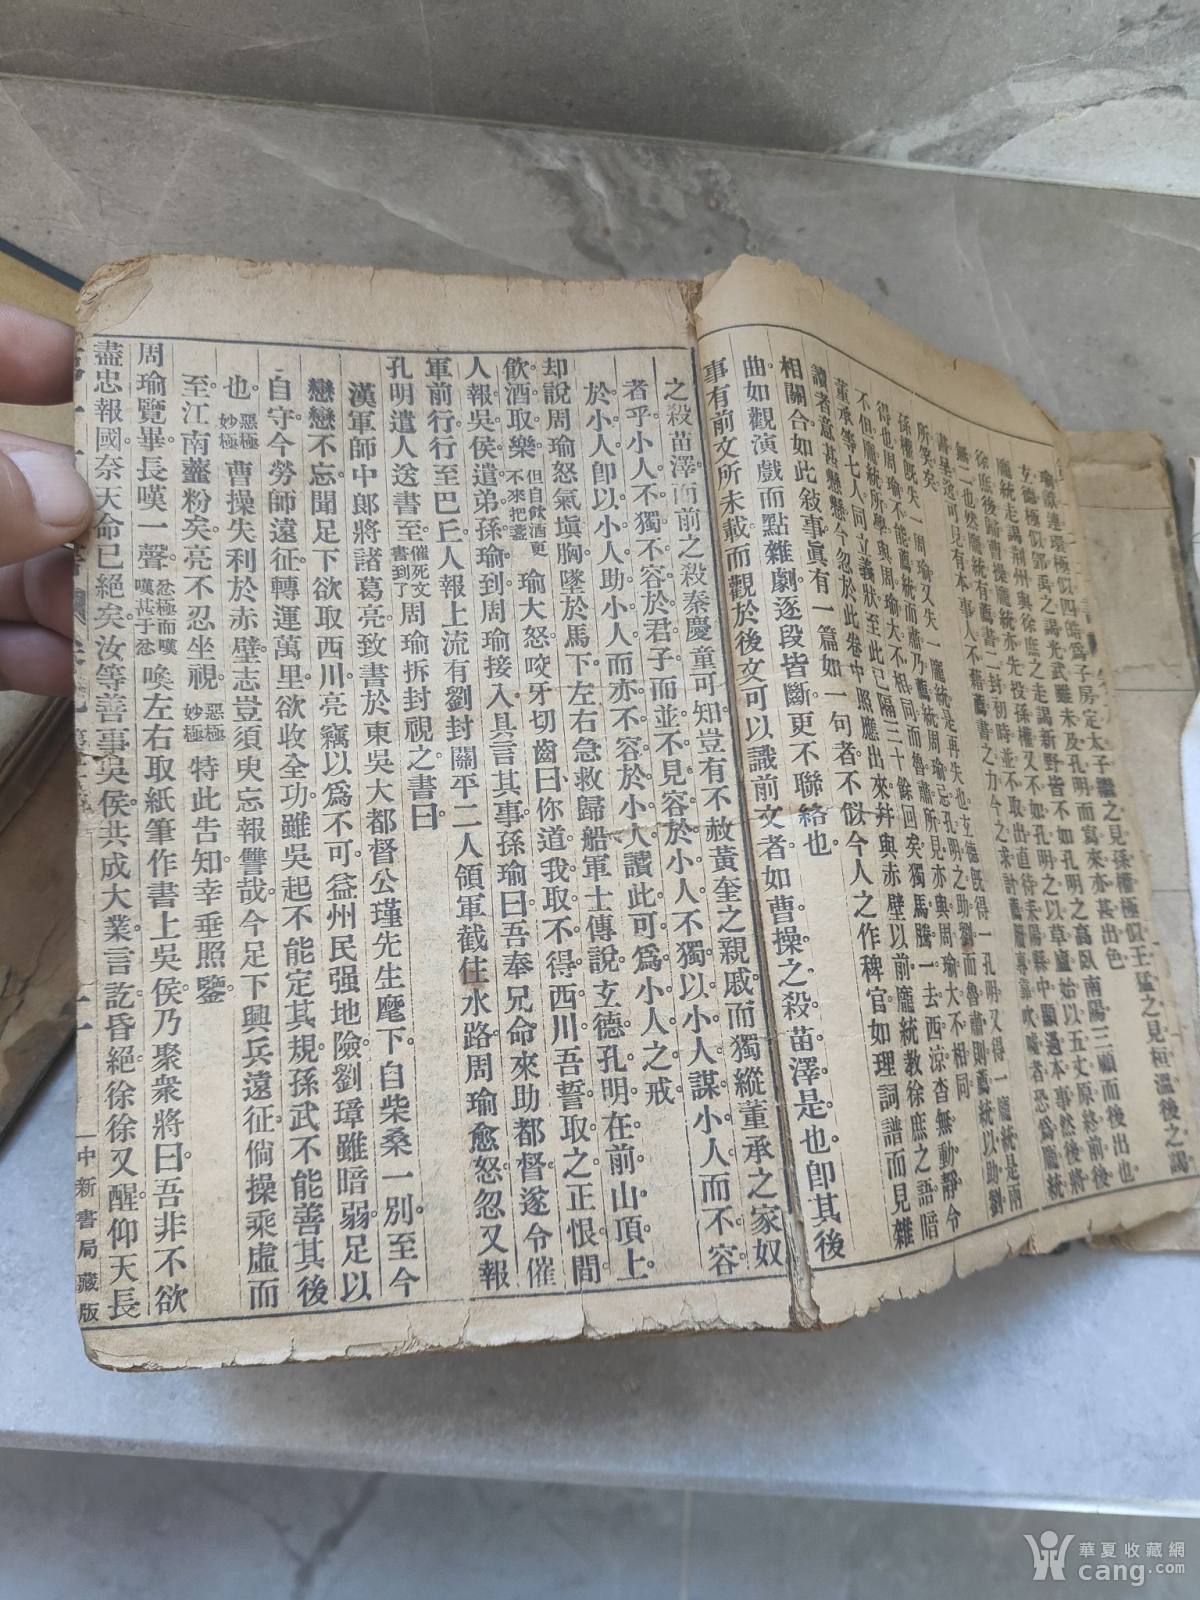 之見孫權極似王猛之見桓溫後之謁
玄德極似鄧禹之謁光武雖未及孔明而寫來亦甚出色
龐統走謁荆州與徐庶之走謁新野皆不如孔明之高臥南陽三顧而後出也
徐庶後歸曹操龐統亦先投孫權又不如孔明之以草廬始以五丈原終前後
無二也然龐統有薦書二封初時並不取出直待耒陽縣中顯過本事然後將
書呈送可見有本事人不藉薦書之力今之求計薦牘專靠吹噓者恐爲龐統
所笑矣
孫權旣失一周瑜又失一龐統是再失也玄德旣得一孔明又得一龐統是兩
得也周瑜不能薦統而肅乃薦統周瑜忌孔明之助劉而魯肅則薦統以助劉
不但龐統所學與周瑜大不相同而魯肅所見亦與周瑜大不相同
董承等七人同立義狀至此已隔三十餘回矣獨馬騰一去西涼杳無動靜令
讀者意甚懸懸今忽於此卷中照應出來幷與赤壁以前龐統教徐庶之語暗
相關合如此敍事眞有一篇如一句者不似今人之作稗官如理詞譜而見雜
曲如觀演戲而點雜劇逐段皆斷更不聯絡也
事有前文所未載而觀於後文可以識前文者如曹操之殺苗澤是也卽其後
之殺苗澤而前之殺秦慶童可知豈有不赦黃奎之親戚而獨縱董承之家奴
者乎小人不獨不容於君子而並不見容於小人不獨以小人謀小人而不容
於小人卽以小人助小人而亦不容於小人讀此可爲小人之戒
却說周瑜怒氣塡胸墜於馬下左右急救歸船軍士傳說玄德孔明在前山頂上
飲酒取樂但自飲酒更不來把盞瑜大怒咬牙切齒曰你道我取不得西川吾誓取之正恨間
人報吳侯遣弟孫瑜到周瑜接入具言其事孫瑜曰吾奉兄命來助都督遂令催
軍前行行至巴丘人報上流有劉封關平二人領軍截住水路周瑜愈怒忽又報
孔明遣人送書至催死文書到了周瑜拆封視之書曰
漢軍師中郞將諸葛亮致書於東吳大都督公瑾先生麾下自柴桑一別至今
戀戀不忘聞足下欲取西川亮竊以爲不可益州民强地險劉璋雖暗弱足以
自守今勞師遠征轉運萬里欲收全功雖吳起不能定其規孫武不能善其後
也惡極妙極曹操失利於赤壁志豈須臾忘報讐哉今足下興兵遠征倘操乘虛而
至江南虀粉矣亮不忍坐視惡極妙極特此告知幸垂照鑒
周瑜覽畢長嘆一聲忿極而嘆嘆甚于忿喚左右取紙筆作書上吳侯乃聚衆將曰吾非不欲
盡忠報國奈天命已絕矣汝等善事吳侯共成大業言訖昏絕徐徐又醒仰天長
中新書局藏版
華夏收藏網
cang.com